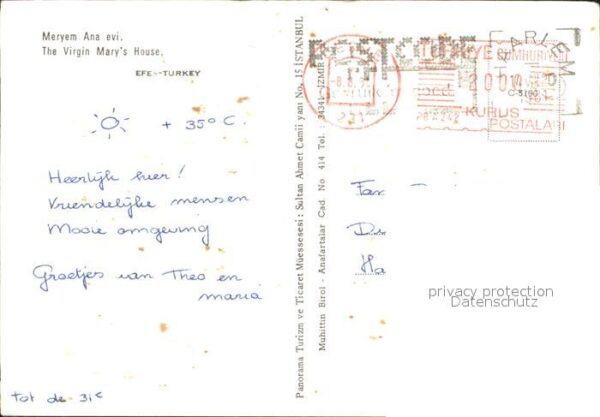 Meryem Ana evi.
The Virgin Mary's House.
EFE--TURKEY
+ 35° C.
Heerlijk hier!
Vriendelijke mensen
Mooie omgeving
Groetjes van Theo en
maria
tot de 31e
Panorama Turizm ve Ticaret Müessesesi: Sultan Ahmet Camii yanı No. 15 İSTANBUL
Muhittin Birol - Anafartalar Cad. No 414 Tel.: 34341-İZMİR
POSTCODE
HAARLEM
CUMHURİYETİ
KURUŞ
POSTALARI
Fam
Ha
privacy protection
Datenschutz